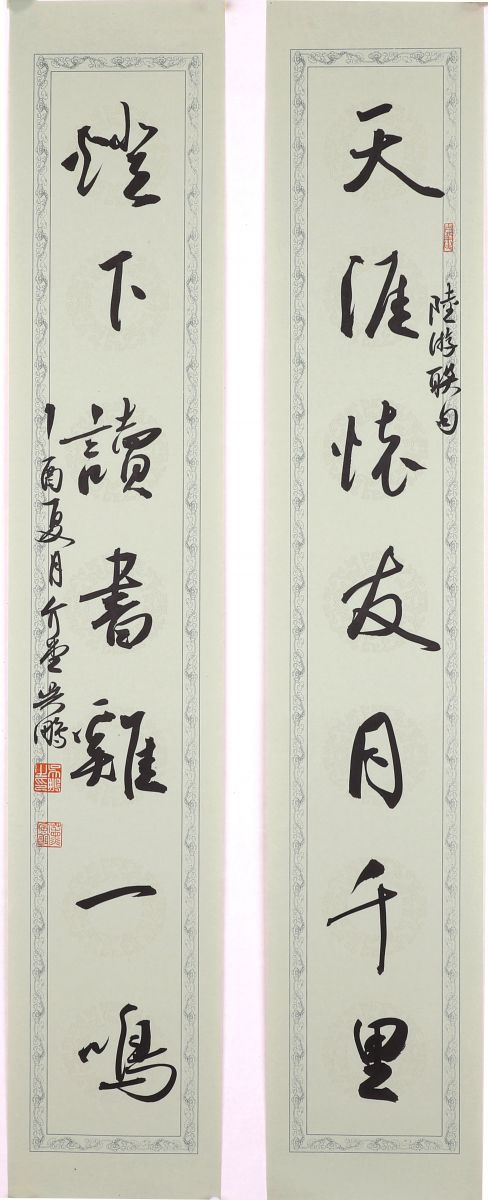 天涯懷友月千里
陸游联句
燈下讀書雞一鳴
丁酉夏月介堂吴鹏